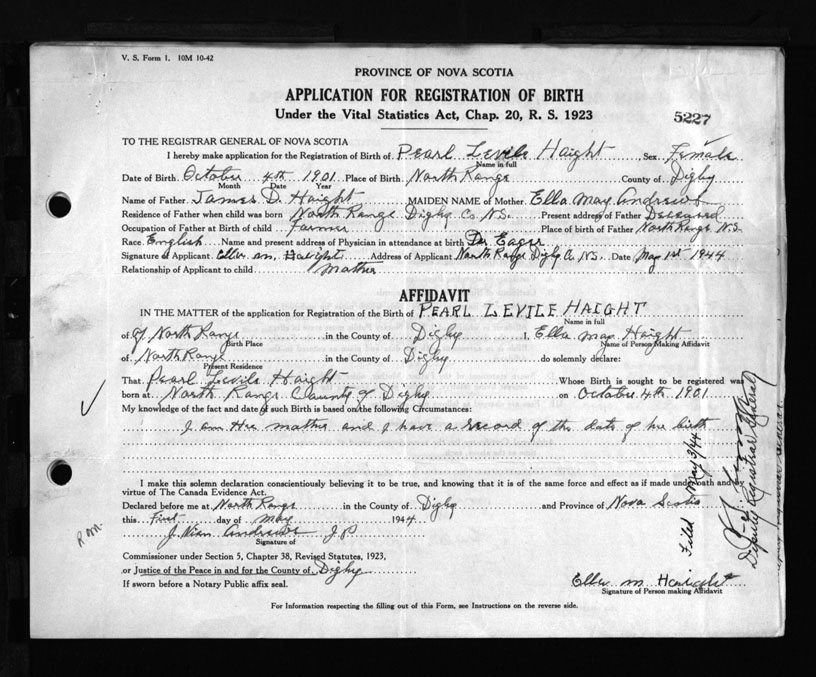 V. S. Form 1. 10M 10-42
PROVINCE OF NOVA SCOTIA
APPLICATION FOR REGISTRATION OF BIRTH
Under the Vital Statistics Act, Chap. 20, R. S. 1923
5227
TO THE REGISTRAR GENERAL OF NOVA SCOTIA
I hereby make application for the Registration of Birth of Pearl Levile Haight, Sex Female
Name in full
Date of Birth October 4th 1901 Place of Birth North Range County of Digby
Month Date Year
Name of Father James D. Haight MAIDEN NAME of Mother Ella May Andrews
Residence of Father when child was born North Range Digby Co N.S. Present address of Father Deceased
Occupation of Father at Birth of child Farmer Place of birth of Father North Range N.S.
Race English Name and present address of Physician in attendance at birth Dr Eager
Signature of Applicant Ella m. Haight Address of Applicant North Range Digby Co N.S. Date May 1st 1944
Relationship of Applicant to child Mother
AFFIDAVIT
IN THE MATTER of the application for Registration of the Birth of PEARL LEVILE HAIGHT
Name in full
of of North Range in the County of Digby I, Ella May Haight
Birth Place Name of Person Making Affidavit
of North Range in the County of Digby do solemnly declare:
Present Residence
That Pearl Levile Haight Whose Birth is sought to be registered was
born at North Range County of Digby on October 4th 1901
My knowledge of the fact and date of such Birth is based on the following Circumstances:
I am Her mother and I have a record of the date of her birth
I make this solemn declaration conscientiously believing it to be true, and knowing that it is of the same force and effect as if made under oath and by
virtue of The Canada Evidence Act.
Declared before me at North Range in the County of Digby and Province of Nova Scotia
this First day of May 1944
Andrews J P
Signature of
Commissioner under Section 5, Chapter 38, Revised Statutes, 1923,
or Justice of the Peace in and for the County of Digby
If sworn before a Notary Public affix seal.
Ella m Haight
Signature of Person making Affidavit
For Information respecting the filling out of this Form, see Instructions on the reverse side.
Filed May 3/44
Deputy Registrar General